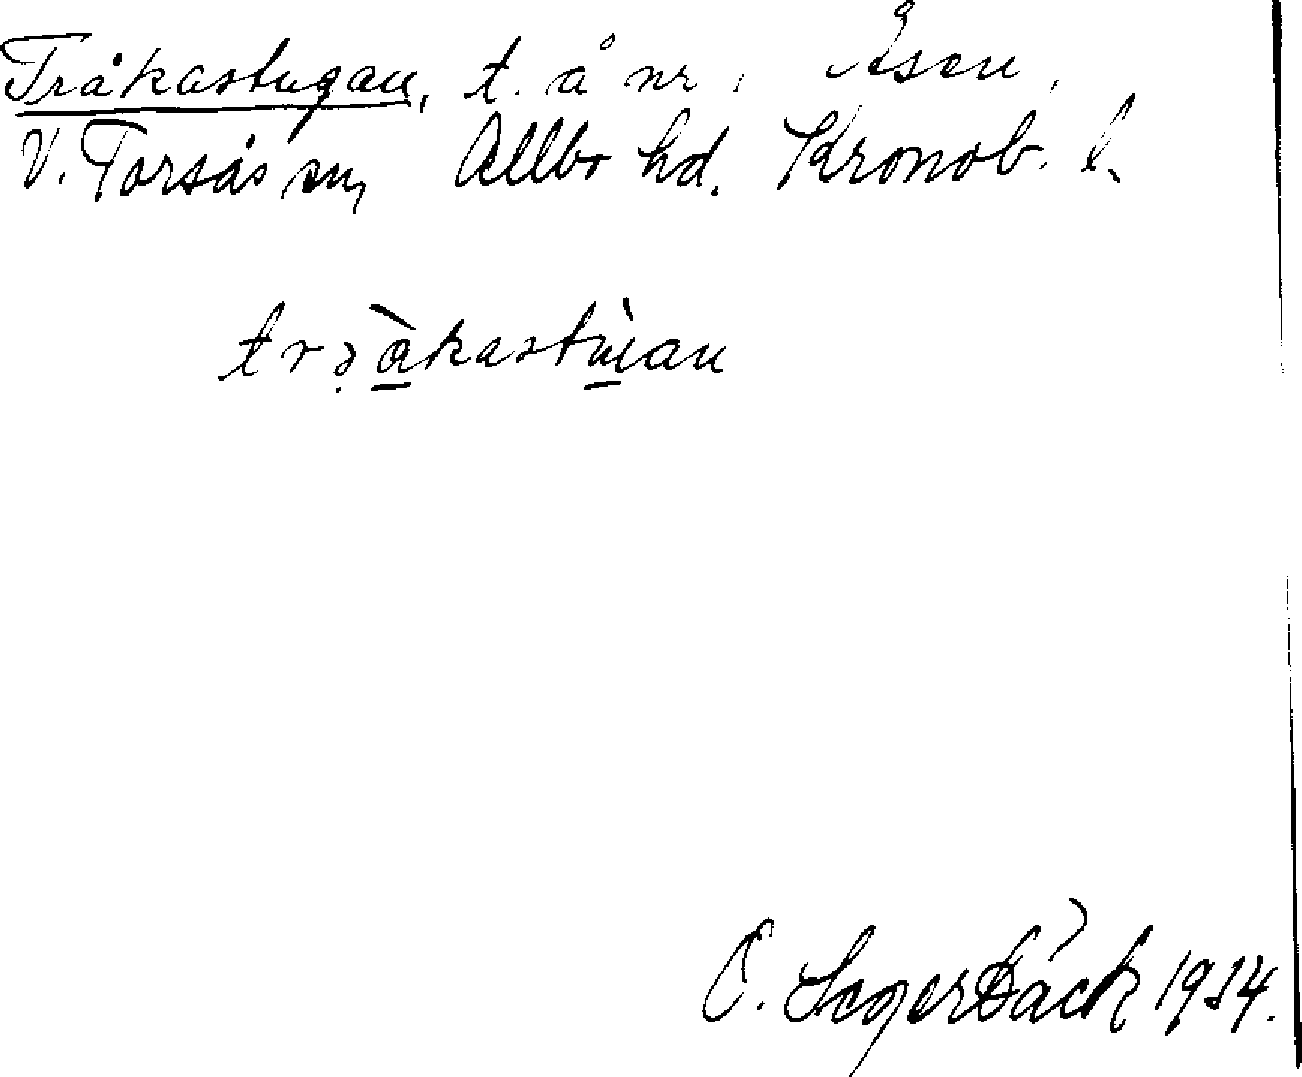 Tråkastugan, t. å nr 1 Åsen,
V. Torsås sn, Allbo hd. Kronob. l.
trəàkastùan
E. Segerbäck 1934.